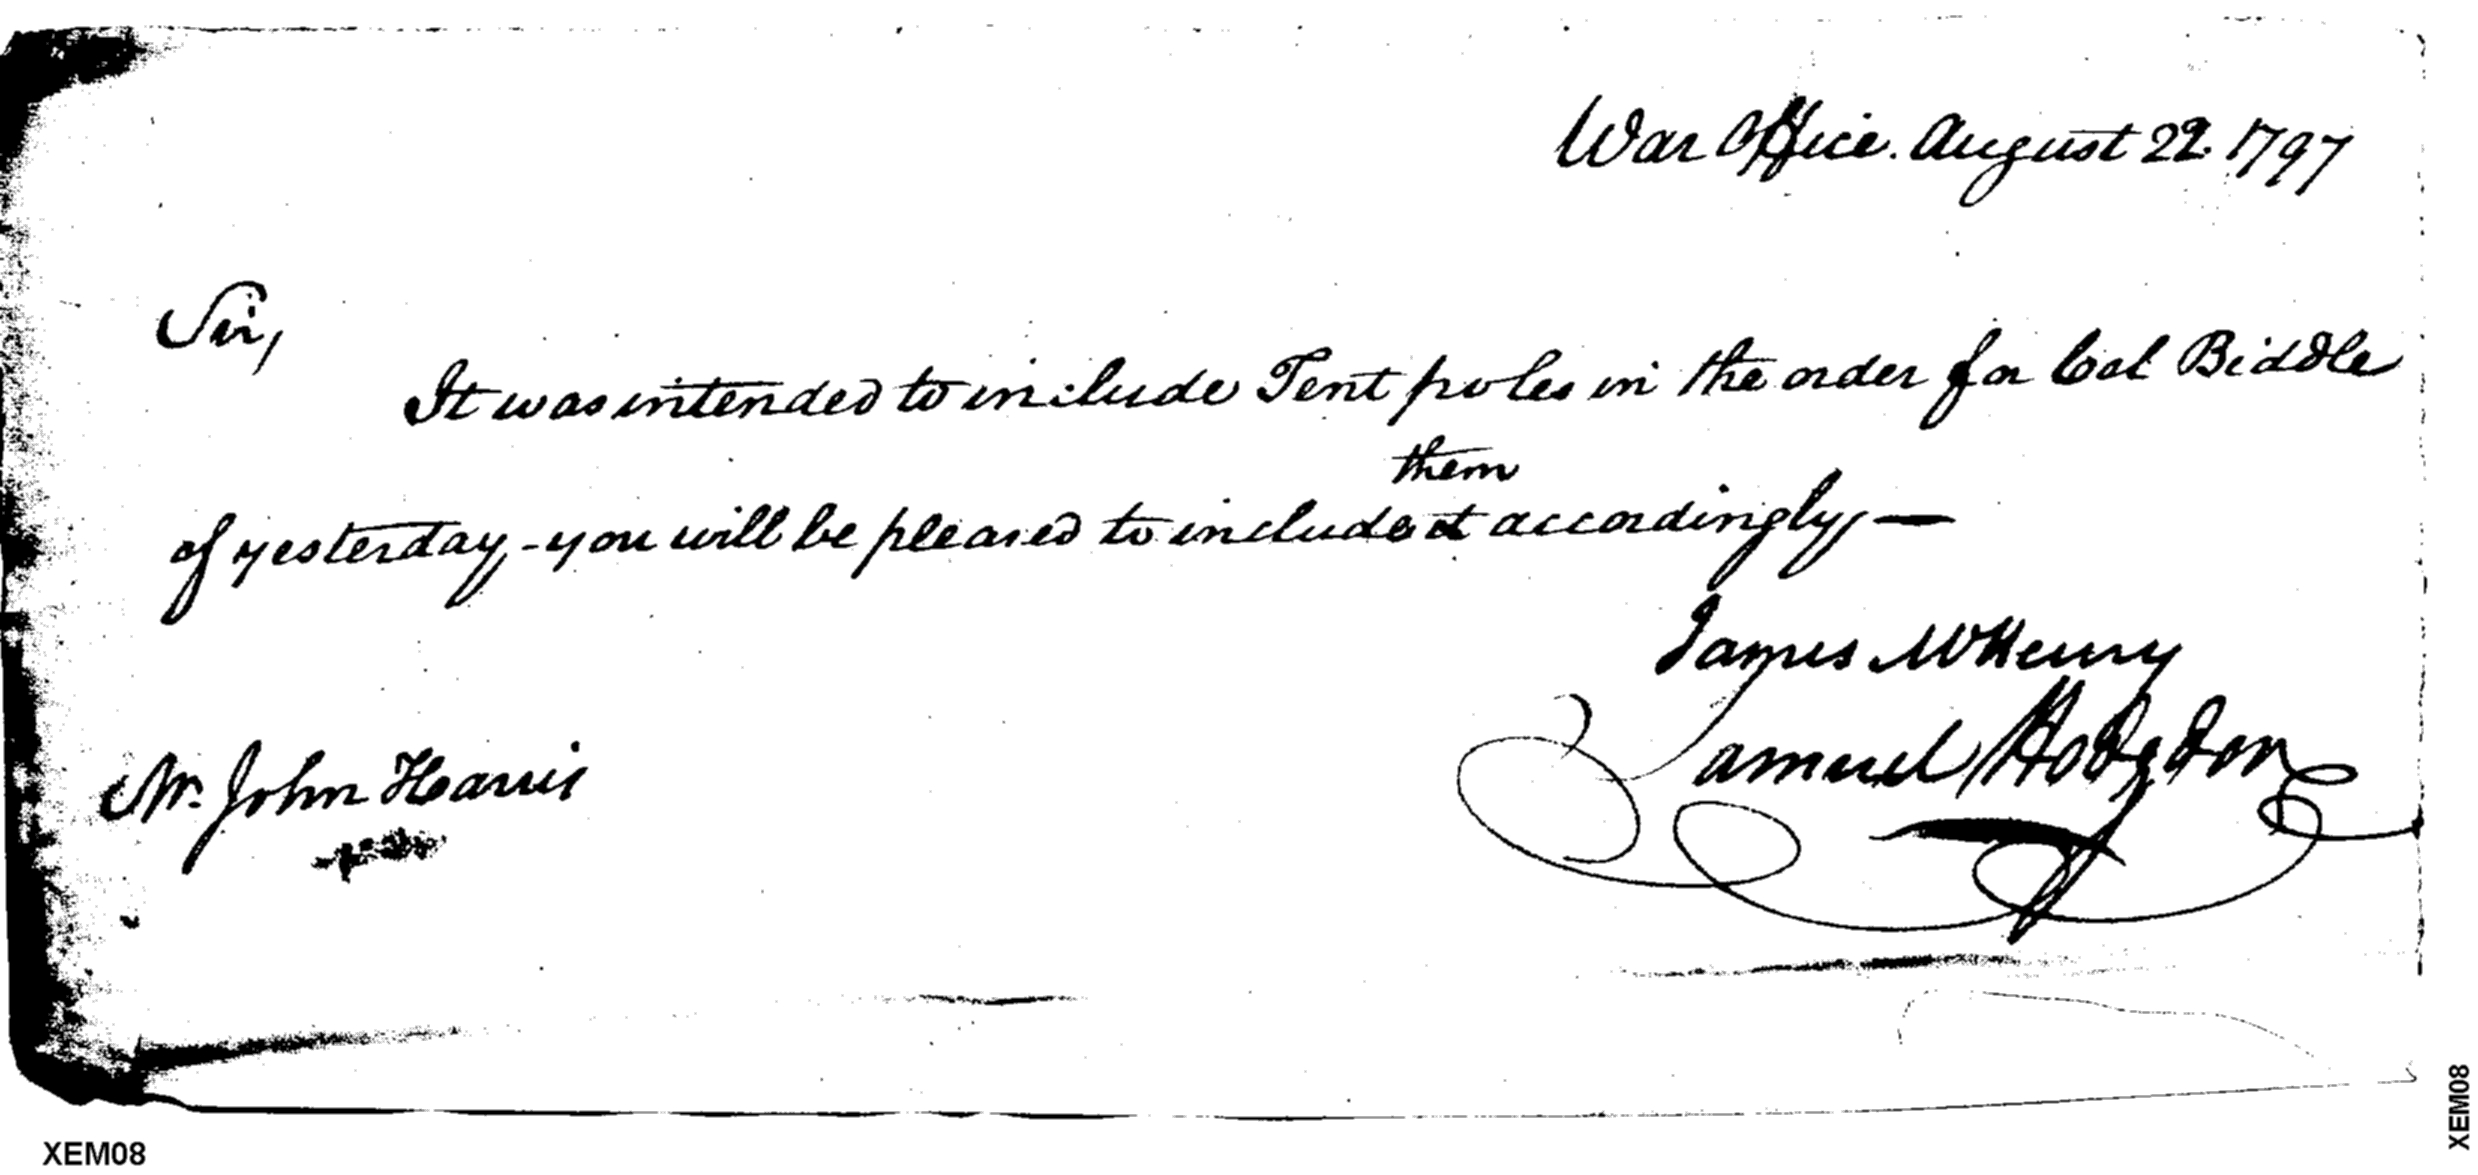 War Office. August 22. 1797
Sir,
It was intended to include Tent poles in the order for Col Biddle
them
of yesterday - you will be pleased to include it accordingly, —
James McHenry
Samuel Hodgdon
Mr. John Harris
XEM08
XEM08